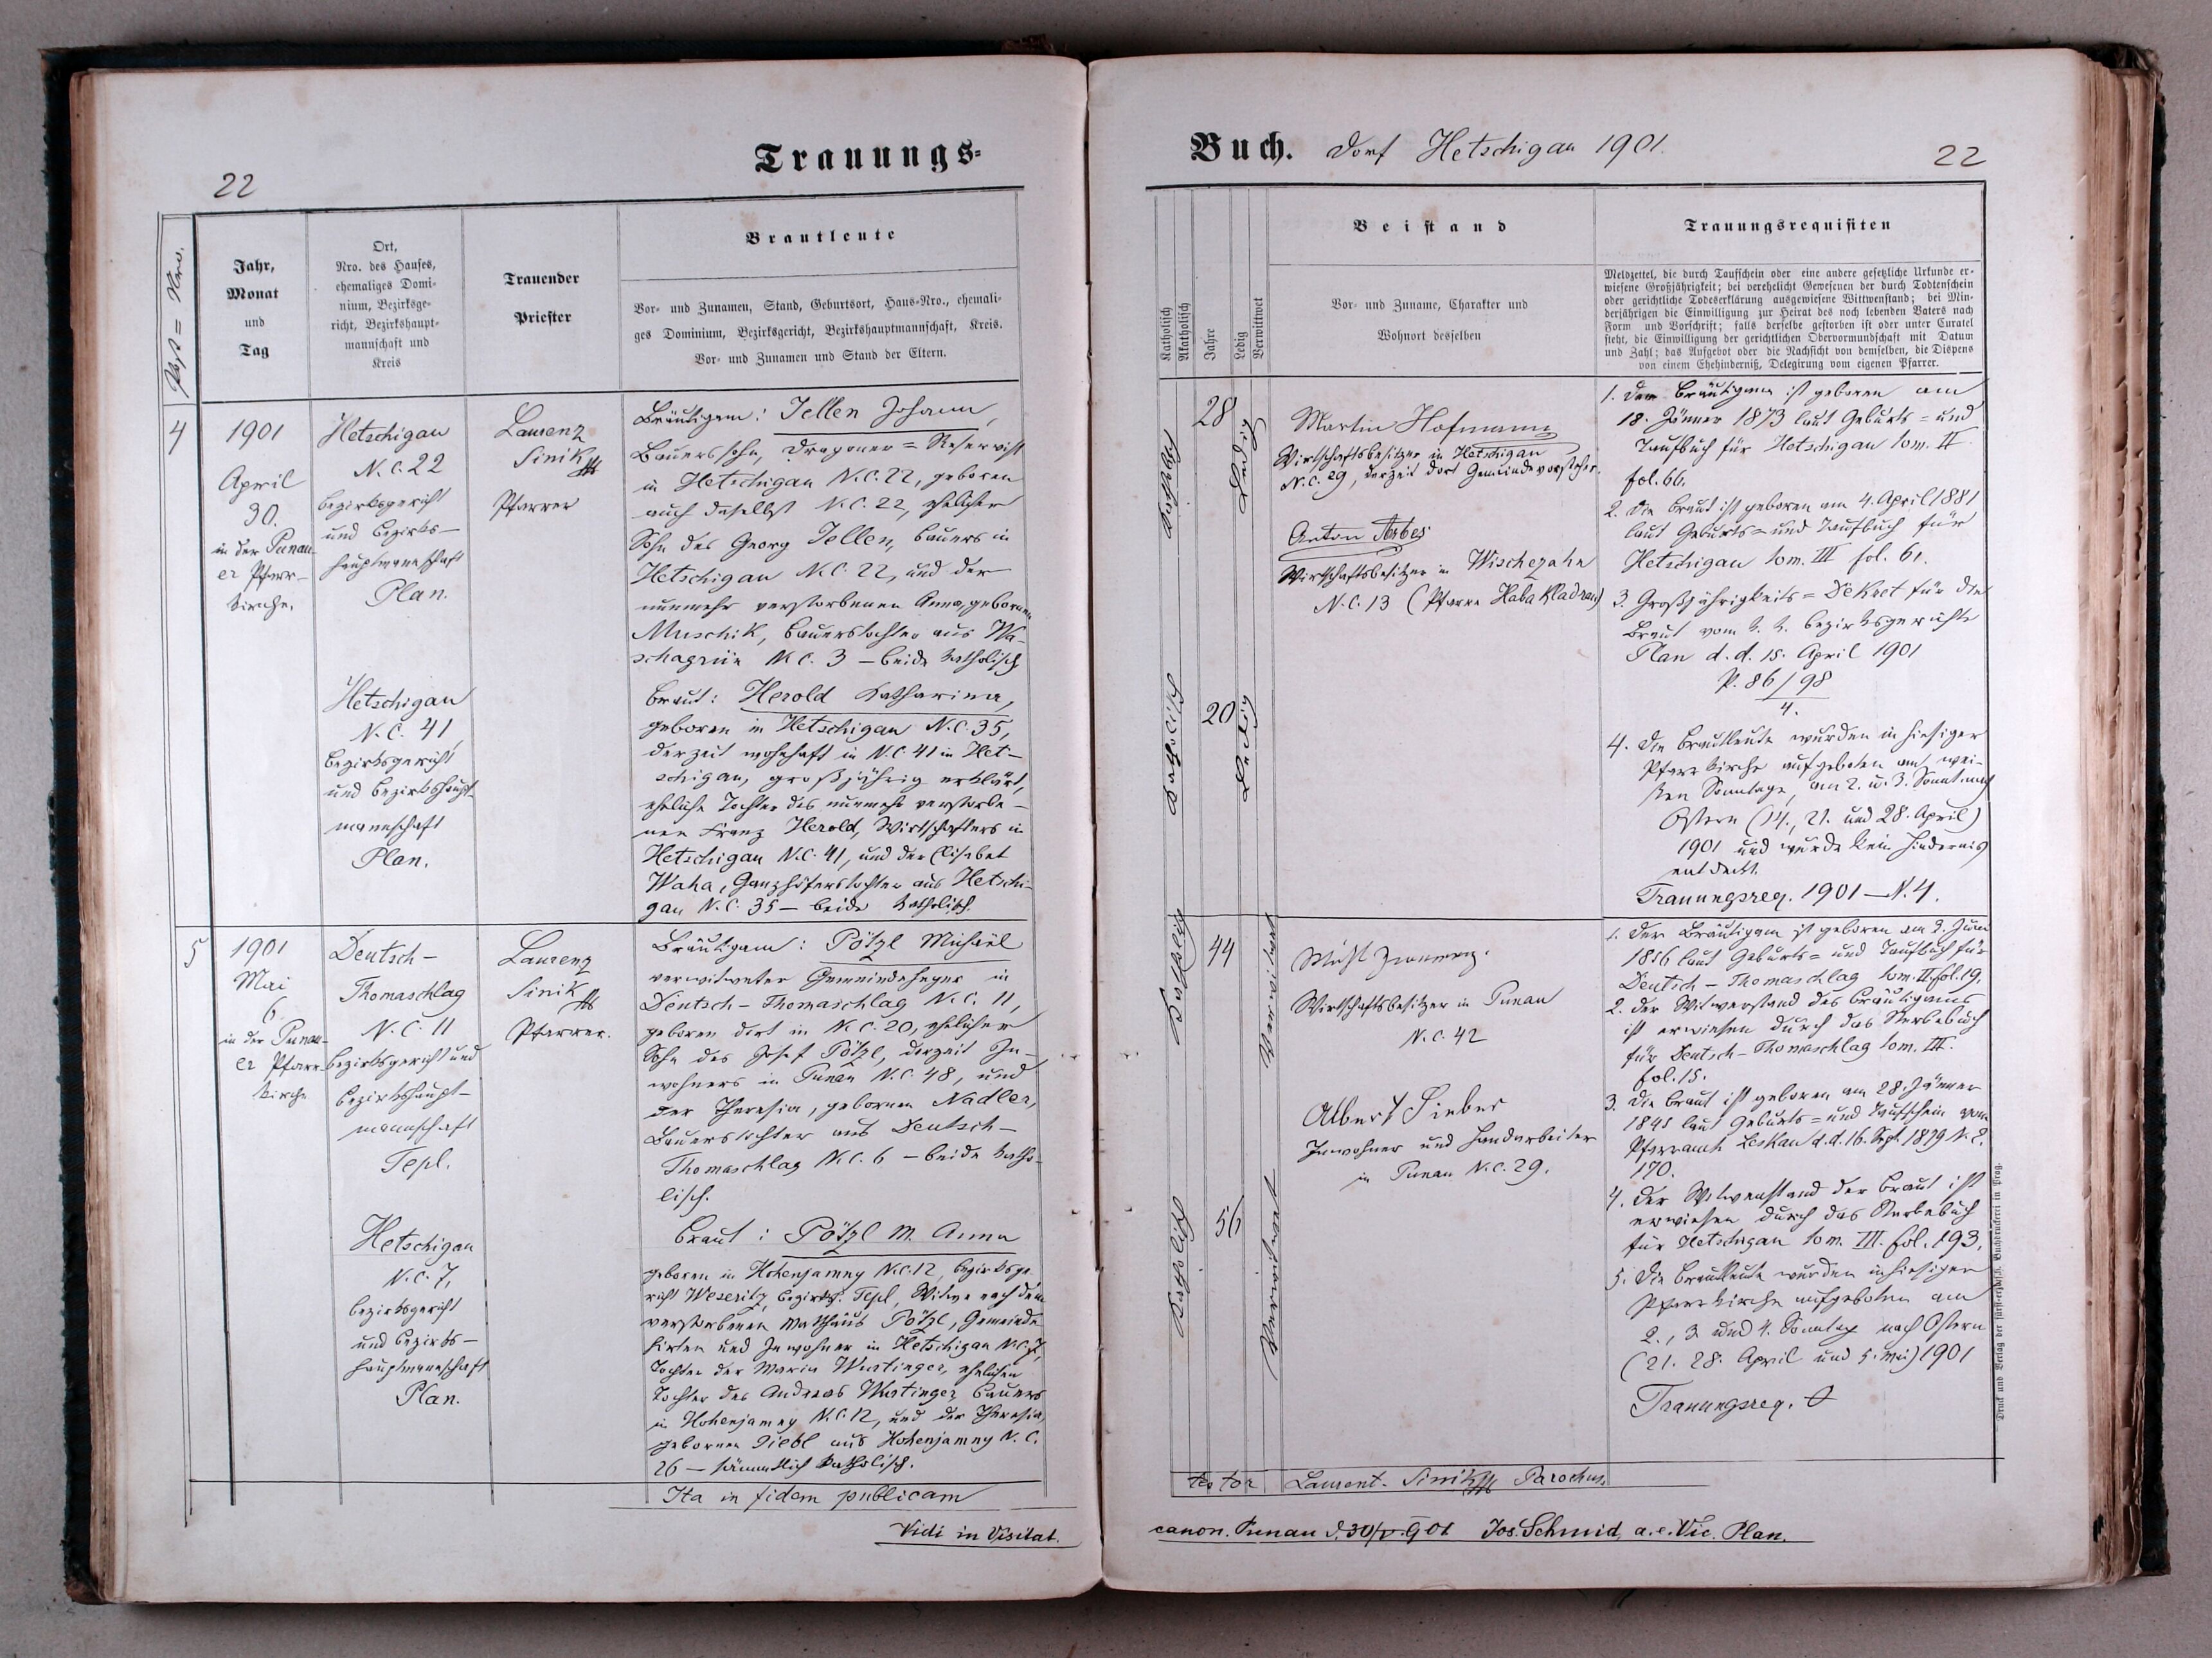 Trauungs=
22
Post=Nro.
Jahr,
Monat
und
Tag
Ort,
Nro. des Hauses,
ehemaliges Domi-
nium, Bezirksge-
richt, Bezirkshaupt-
mannschaft und
Kreis
Trauender
Priester
Brautleute
Vor- und Zunamen, Stand, Geburtsort, Haus-Nro., ehemali-
ges Dominium, Bezirksgericht, Bezirkshauptmannschaft, Kreis.
Vor- und Zunamen und Stand der Eltern.
4
1901
April
30.
in der Punau-
er Pfarr-
kirche.
Hetschigau
N.C. 22
Bezirksgericht
und Bezirks-
hauptmannschaft
Plan.
Hetschigau
N.C. 41
Bezirksgericht
und Bezirkshaupt-
mannschaft
Plan.
Laurenz
Sinik
Pfarrer
Bräutigam: Tellen Johann,
Bauerssohn, Dragoner=Reservist
in Hetschigau N.C. 22, geboren
auch daselbst N.C. 22, ehelicher
Sohn des Georg Tellen, Bauers in
Hetschigau N.C. 22, und der
nunmehr verstorbenen Anna, gebornen
Muschik, Bauerstochter aus Wa-
schagrün N.C. 3 – beide katholisch
Braut: Herold Katharina,
geboren in Hetschigau N.C. 35,
derzeit wohnhaft in N.C. 41 in Het-
schigau, großjährig erklärt,
eheliche Tochter des nunmehr verstorbe-
nen Franz Herold, Wirtschafters in
Hetschigau N.C. 41, und der Elisabet
Waha, Ganzhöferstochter aus Hetschi-
gau N.C. 35 – beide katholisch.
5
1901
Mai
6.
in der Punau-
er Pfarr-
kirche
Deutsch-
Thomaschlag
N.C. 11
Bezirksgericht und
Bezirkshaupt-
mannschaft
Tepl.
Hetschigau
N.C. 7,
Bezirksgericht
und Bezirks-
hauptmannschaft
Plan.
Laurenz
Sinik
Pfarrer.
Bräutigam: Pötzl Michael
verwitweter Gemeindeheger in
Deutsch-Thomaschlag N.C. 11,
geboren dort in N.C. 20, ehelicher
Sohn des Josef Pötzl, derzeit In-
wohners in Punau N.C. 48, und
der Theresia, gebornen Nadler,
Bauerstochter aus Deutsch-
Thomaschlag N.C. 6 – beide katho-
lisch.
Braut: Pötzl M. Anna
geboren in Hohenjamny N.C. 12, Bezirksge-
richt Weseritz, Bezirksh. Tepl, Witwe nach dem
verstorbenen Mathäus Pötzl, Gemeinde-
hirten und Inwohner in Hetschigau N.C. 7,
Tochter der Maria Wurtinger, ehelichen
Tochter des Andreas Wurtinger Bauers
in Hohenjamny N.C. 12, und der Theresia
gebornen Diebl aus Hohenjamny N.C.
26 – sämmtlich katholisch.
Ita in fidem publicam
Vidi in Visitat.
Buch. Dorf Hetschigau 1901.
22
Katholisch
Akatholisch
Jahre
Ledig
Verwittwet
Beistand
Vor- und Zuname, Charakter und
Wohnort desselben
Trauungsrequisiten
Meldzettel, die durch Taufschein oder eine andere gesetzliche Urkunde er-
wiesene Großjährigkeit; bei verehelicht Gewesenen der durch Todtenschein
oder gerichtliche Todeserklärung ausgewiesene Wittwenstand; bei Min-
derjährigen die Einwilligung zur Heirat des noch lebenden Vaters nach
Form und Vorschrift; falls derselbe gestorben ist oder unter Curatel
steht, die Einwilligung der gerichtlichen Obervormundschaft mit Datum
und Zahl; das Aufgebot oder die Nachsicht von demselben, die Dispens
von einem Ehehinderniß, Delegirung vom eigenen Pfarrer.
Katholisch
28
Ledig
Martin Hofmann
Wirtschaftsbesitzer in Hetschigau
N.C. 29, derzeit dort Gemeindevorsteher.
Anton Arbes
Wirtschaftsbesitzer in Wischezahn
N.C. 13 (Pfarre Haba Kladrau)
Katholisch
20
Ledig
1. Der Bräutigam ist geboren am
18. Jänner 1873 laut Geburts= und
Taufbuch für Hetschigau tom. II
fol. 66.
2. Die Braut ist geboren am 4. April 1881
laut Geburts= und Taufbuch für
Hetschigau tom. III fol. 61.
3. Großjährigkeits=Dekret für die
Braut vom k. k. Bezirksgerichte
Plan d. d. 15. April 1901
P. 86/98
4.
4. Die Brautleute wurden in hiesiger
Pfarrkirche aufgeboten am wei-
ßen Sonntage, am 2. u. 3. Sonnt. nach
Ostern (14., 21. und 28. April)
1901 und wurde kein Hindernis
entdeckt.
Trauungsreq. 1901 – N. 4.
Katholisch
44
Verwitwet
Wirtschaftsbesitzer in Punau
N.C. 42
Albert Sieber
Inwohner und Handarbeiter
in Punau N.C. 29.
Katholisch
56
Verwitwet
1. Der Bräutigam ist geboren am 3. Juni
1856 laut Geburts= und Taufbuch für
Deutsch-Thomaschlag tom. II. fol. 19.
2. Der Witwerstand des Bräutigams
ist erwiesen durch das Sterbebuch
für Deutsch-Thomaschlag tom. III.
fol. 15.
3. Die Braut ist geboren am 28. Jänner
1845 laut Geburts= und Taufschein vom
Pfarramt Leskau d. d. 16. Sept. 1879 N. E.
170.
4. Der Witwenstand der Braut ist
erwiesen durch das Sterbebuch
für Hetschigau tom. III. fol. 193.
5. Die Brautleute wurden in hiesiger
Pfarrkirche aufgeboten am
2., 3. und 4. Sonntag nach Ostern
(21. 28. April und 5. Mai) 1901
Trauungsreq.
testor Laurent. Sinik Parochus.
canon. Punau d. 30/V. 901 Jos. Schmid, a.e. Vic. Plan.
Druck und Verlag der fürst-erzbisch. Buchdruckerei in Prag.